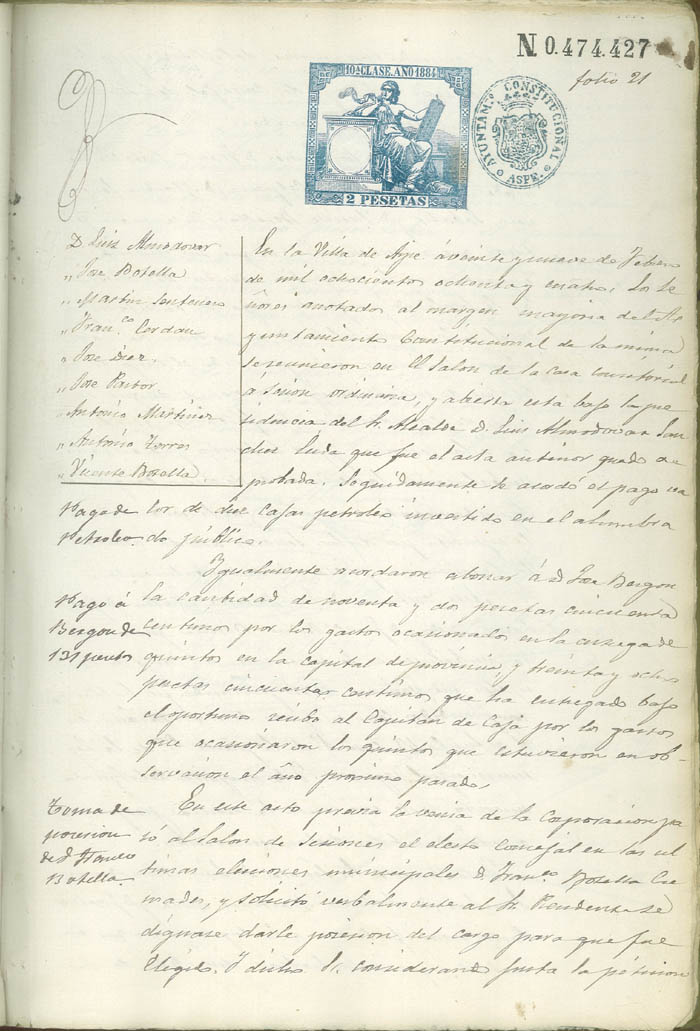 N 0.474.427
folio 21
10ª CLASE. AÑO 1884
2 PESETAS
AYUNTAM.º CONSTITUCIONAL
ASPE.
D Luis Almodovar
" Jose Botella
" Martin
" Fran.co Cerdan
" Jose Diez
" Jose Pastor
" Antonio Martinez
" Antonio Torres
" Vicente Botella
En la Villa de Aspe á veinte y nueve de Febrero
de mil ochocientos ochenta y cuatro; Los Se
ñores anotados al margen mayoria del A
yuntamiento Constitucional de la misma
se reunieron en el Salon de la Casa consistorial
á sesion ordinaria, y abierta esta bajo la pre
sidencia del Sr. Alcalde D. Luis Almodovar San
chez leida que fue el acta anterior quedo a
probada. Seguidamente se acordó el pago va
lor de diez cajas petroleo invertido en el alumbra
do público.
Pago de
Petroleo
Igualmente acordaron abonar á D. Jose Bergon
la cantidad de noventa y dos pesetas cincuenta
centimos por los gastos ocasionados en la entrega de
quintos en la capital de provincia, y treinta y ocho
pesetas cincuenta centimos que ha entregado bajo
el oportuno recibo al Capitan de Caja por los gastos
que ocasionaron los quintos que estuvieron en ob-
servacion el año proximo pasado.
Pago á
Bergon de
131 pesetas
En este acto previa la venia de la Corporacion pa
só al Salon de sesiones el electo Concejal en las ul
timas elecciones municipales D. Fran.co Botella Cre
mades, y solicitó verbalmente al Sr. Presidente se
dignase darle posesion del cargo para que fue
elegido. Y dicho Sr. considerando justa la peticion
Toma de
posesion
de D. Franco
Botella